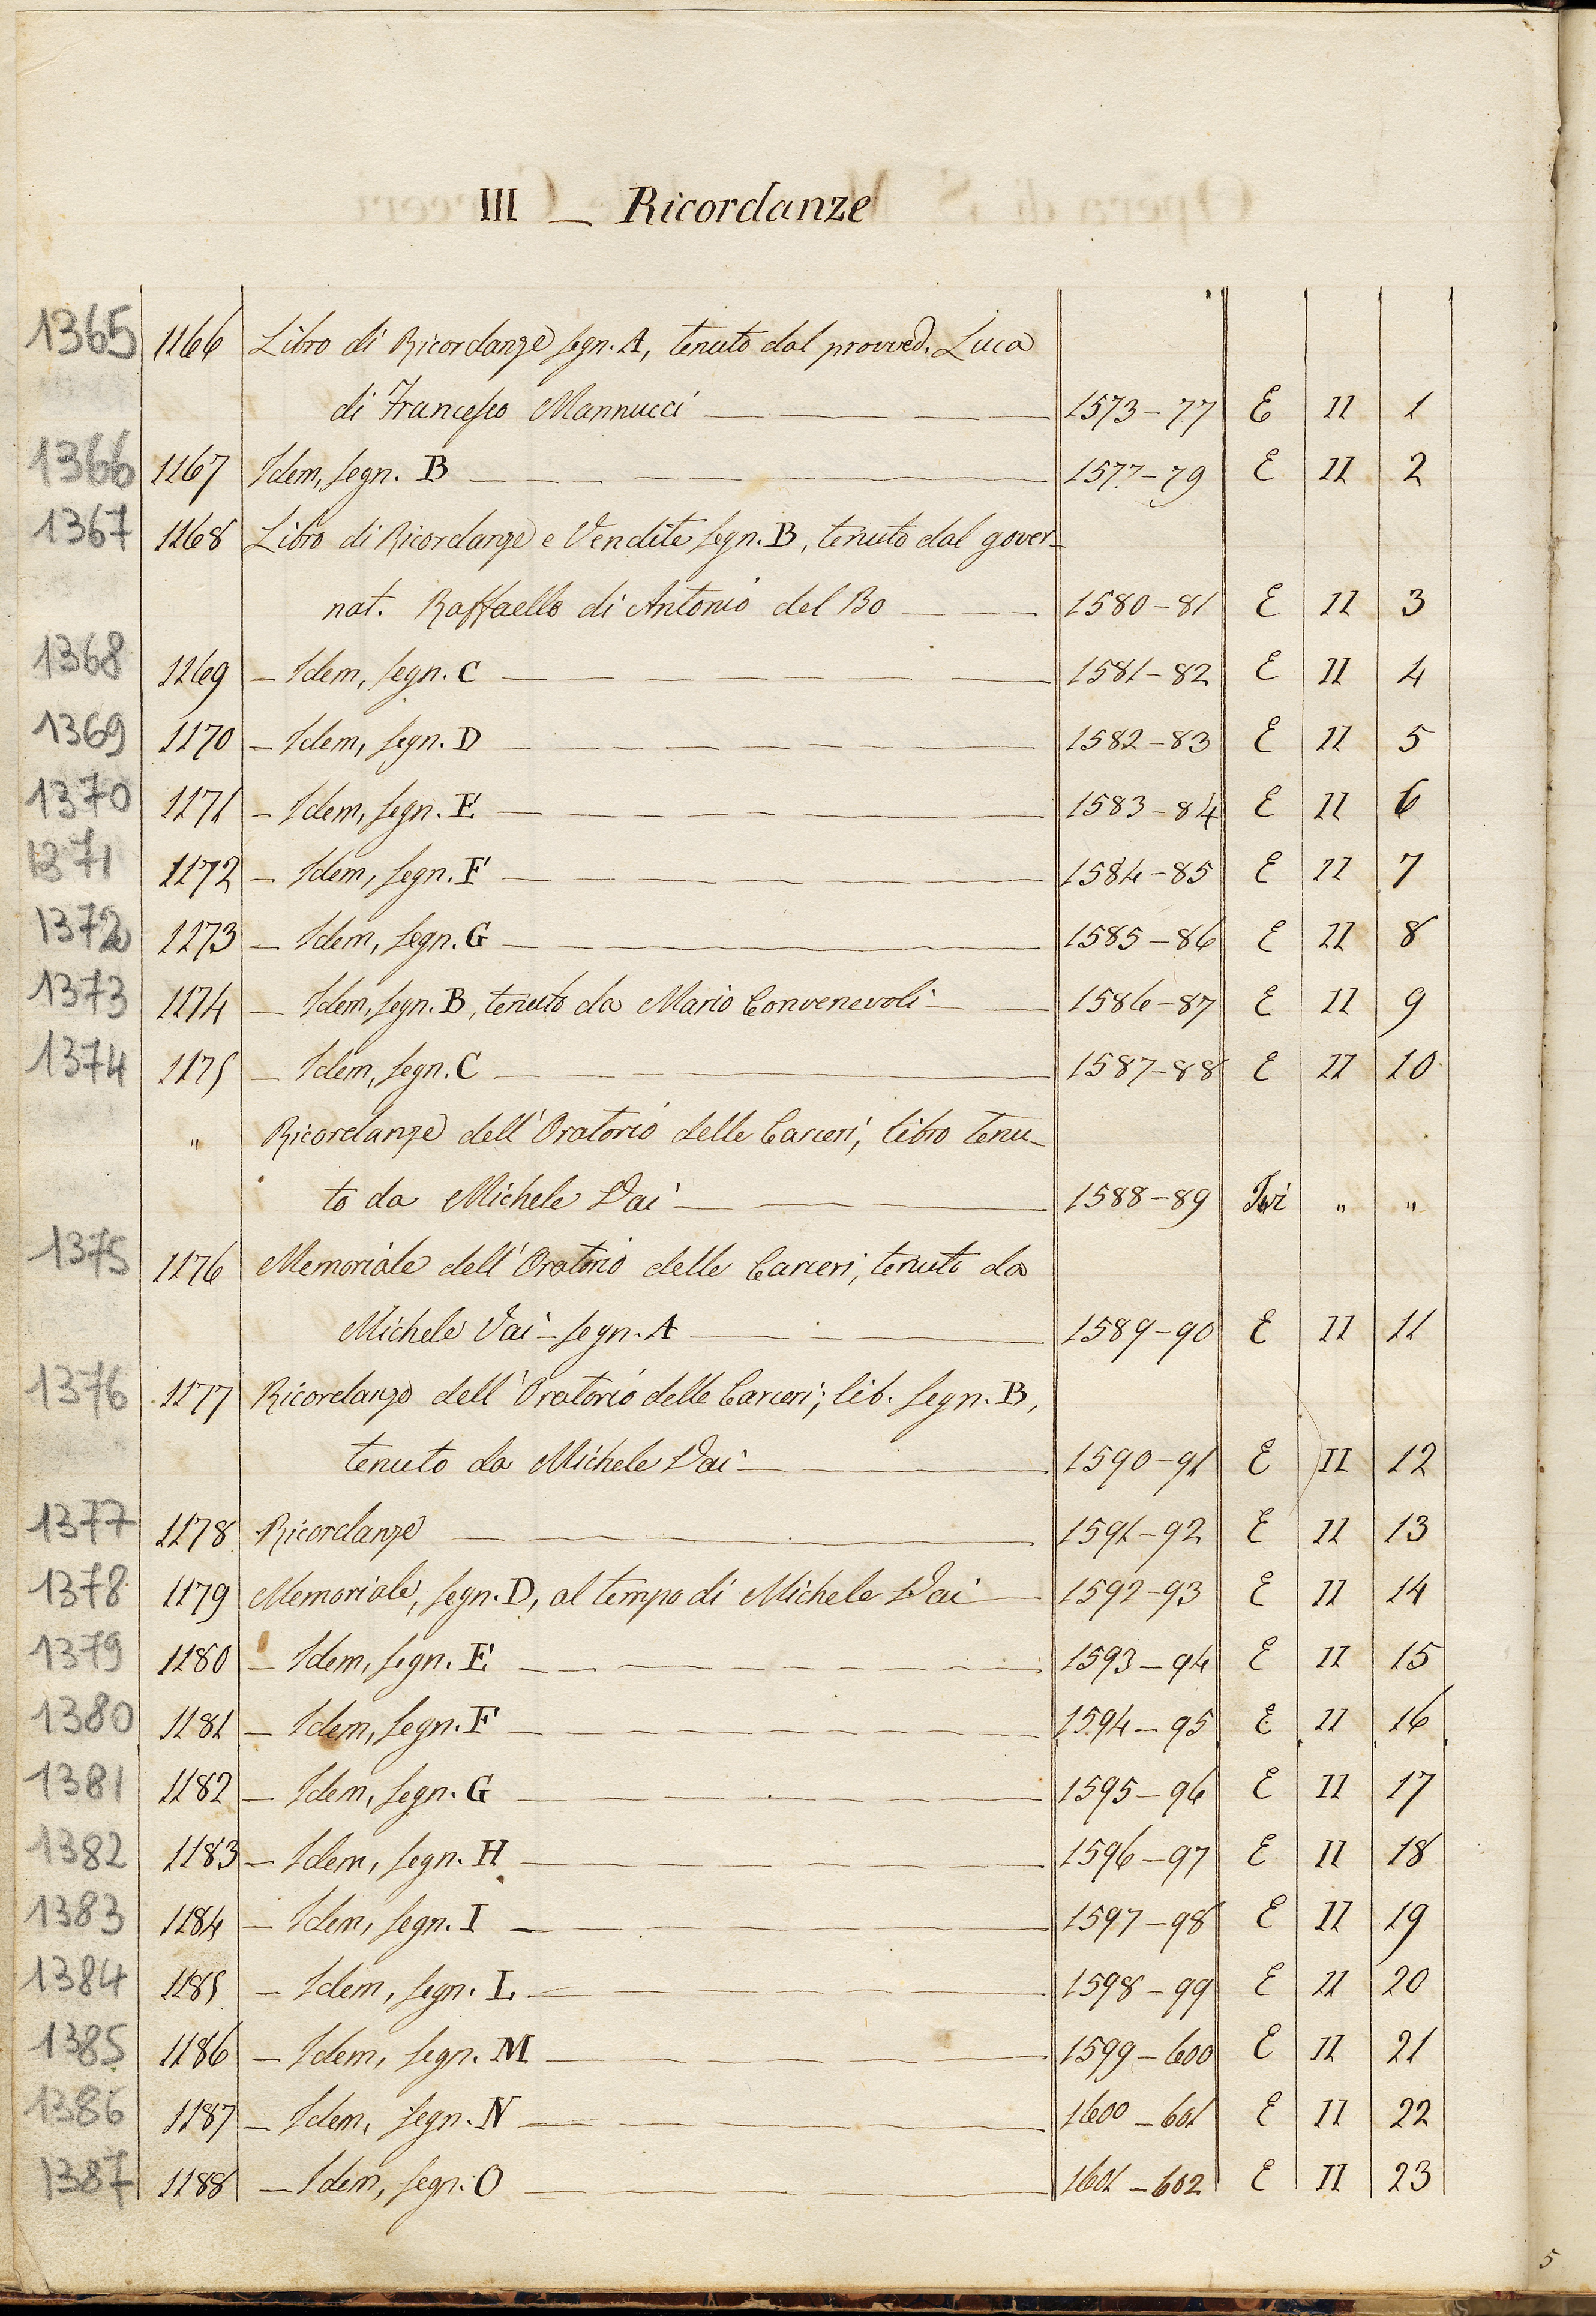 III — Ricordanze
1365 1166 Libro di Ricordanze segn. A, tenuto dal provved. Luca
di Francesco Mannucci — 1573-77 E II 1
1366 1167 Idem, segn. B — 1577-79 E II 2
1367 1168 Libro di Ricordanze e Vendite segn. B, tenuto dal gover-
nat. Raffaello di Antonio del Bo — 1580-81 E II 3
1368 1169 — Idem, segn. C — 1581-82 E II 4
1369 1170 — Idem, segn. D — 1582-83 E II 5
1370 1171 — Idem, segn. E — 1583-84 E II 6
1371 1172 — Idem, segn. F — 1584-85 E II 7
1372 1173 — Idem, segn. G — 1585-86 E II 8
1373 1174 — Idem, segn. B, tenuto da Mario Convenevoli — 1586-87 E II 9
1374 1175 — Idem, segn. C — 1587-88 E II 10
" Ricordanze dell'Oratorio delle Carceri, libro tenu-
to da Michele Vai — 1588-89 Ivi " "
1375 1176 Memoriale dell'Oratorio delle Carceri, tenuto da
Michele Vai — segn. A — 1589-90 E II 11
1376 1177 Ricordanze dell'Oratorio delle Carceri; lib. segn. B,
tenuto da Michele Vai — 1590-91 E II 12
1377 1178 Ricordanze — 1591-92 E II 13
1378 1179 Memoriale, segn. D, al tempo di Michele Vai — 1592-93 E II 14
1379 1180 — Idem, segn. E — 1593-94 E II 15
1380 1181 — Idem, segn. F — 1594-95 E II 16
1381 1182 — Idem, segn. G — 1595-96 E II 17
1382 1183 — Idem, segn. H — 1596-97 E II 18
1383 1184 — Idem, segn. I — 1597-98 E II 19
1384 1185 — Idem, segn. L — 1598-99 E II 20
1385 1186 — Idem, segn. M — 1599-600 E II 21
1386 1187 — Idem, segn. N — 1600-601 E II 22
1387 1188 — Idem, segn. O — 1601-602 E II 23
5